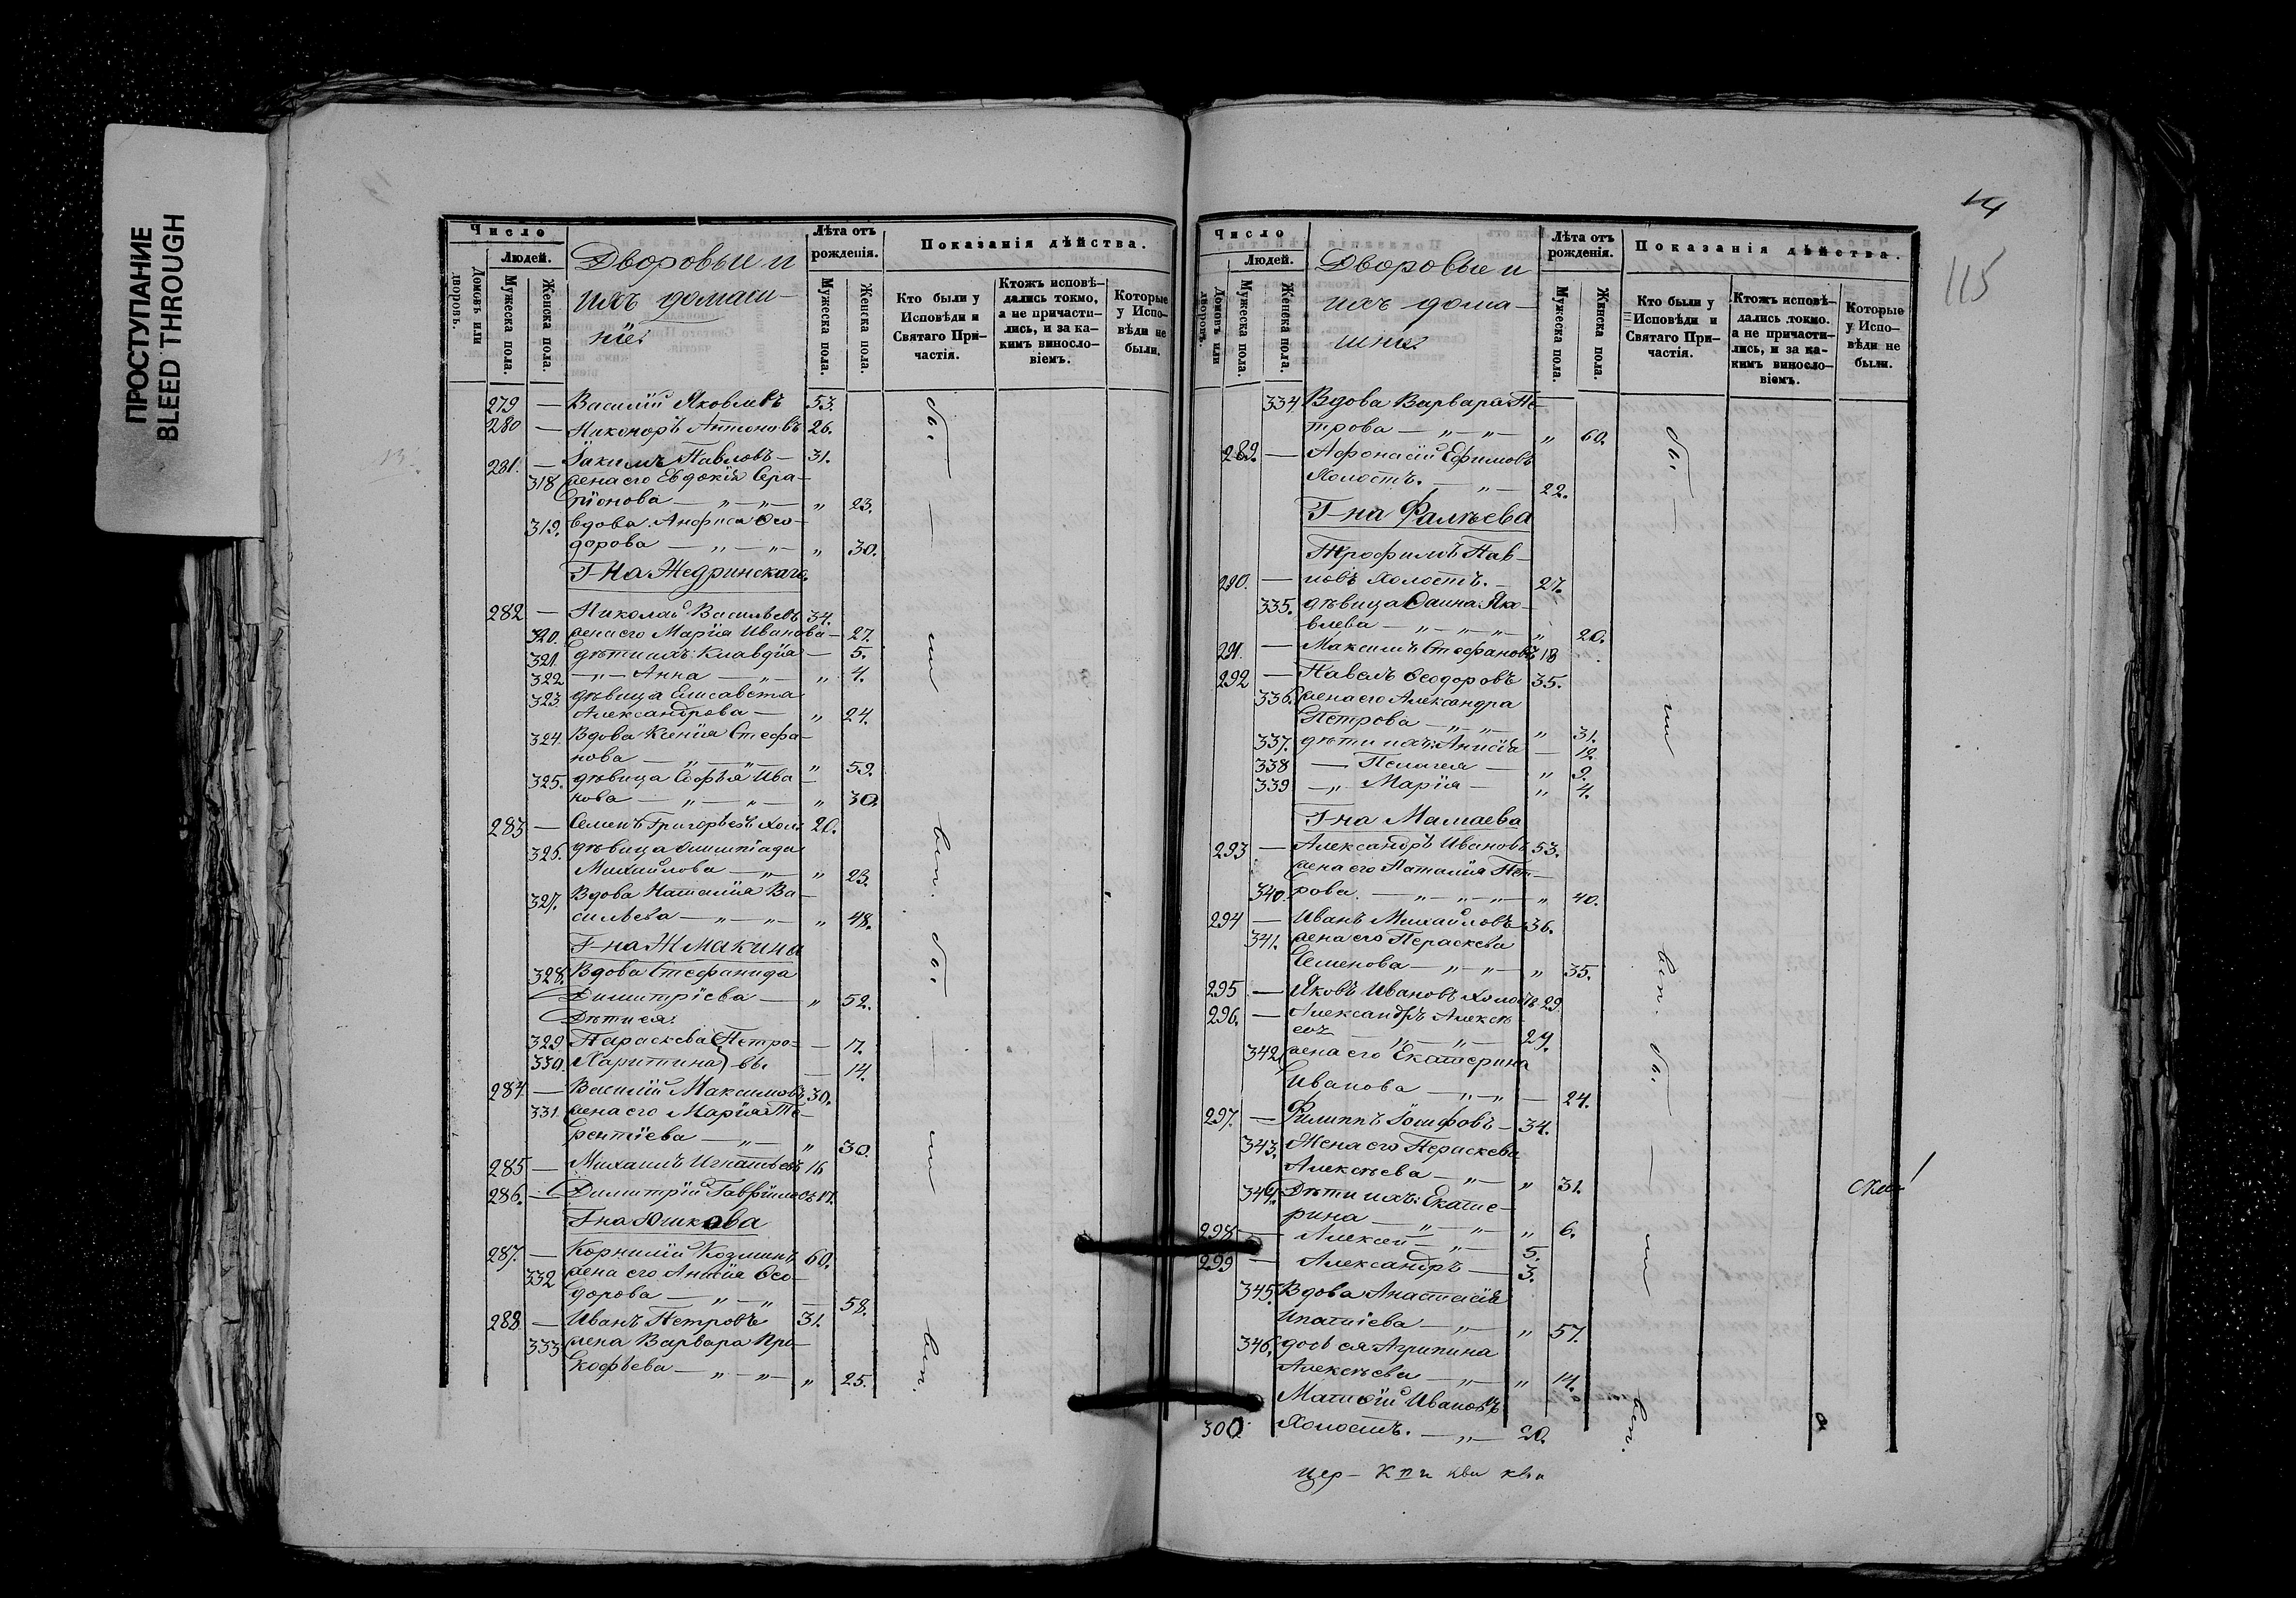 ПРОСТУПАНИЕ
BLEED THROUGH
Число
Людей.
Домовъ или дворовъ.
Мужеска пола.
Женска пола.
Дворовые и
ихъ домаш-
ніе.
Лѣта отъ рожденія.
Мужеска пола.
Женска пола.
Показанія дѣйства.
Кто были у Исповѣди и Святаго Причастія.
Ктожъ исповѣдались токмо, а не причастились, и за какимъ винословіемъ.
Которые у Исповѣди не были.
279 — Василій Яковлевъ 53.
280 — Никоноръ Антоновъ 26.
281. — Іакимъ Павловъ — 31.
318 жена его Евдокія Сера-
піонова — „ — „ — „ 23.
319. вдова Анфиса Ѳео-
дорова — „ — „ — „ 30.
Г-на Жедринскаго.
282 — Николай Васильевъ 34.
320. жена его Марія Иванова — 27.
321. дѣти ихъ: Клавдія — 5.
322 — „ — Анна — „ — „ 4.
323. дѣвица Елисавета
Александрова — „ 24.
324. Вдова Ксенія Стефа-
нова — „ — „ — „ 59.
325. дѣвица Софья Ива-
нова — „ — „ — „ 30.
283 — Семенъ Григорьевъ хол. 20.
326. дѣвица Олимпіада
Михайлова — „ — „ 23.
327. Вдова Наталія Ва-
сильева — „ — „ — „ 48.
Г-на Жмакина
328. Вдова Стефанида
Димитріева — „ 52.
Дѣти ея:
329 Параскева } Петро- — 17.
330. Харитина } вы. — 14.
284. — Василій Максимовъ 30.
331. жена его Марія Те-
рентіева — „ — „ 30.
285 — Михаилъ Игнатьевъ 16
286. — Димитрій Гавриловъ 17.
Г-на Юшкова
287. — Корнилій Козминъ 60.
332 жена его Анна Ѳео-
дорова — „ — „ — 58.
288. — Иванъ Петровъ 31.
333 жена Варвара Про-
кофьева — „ — „ — „ 25.
Число
Людей.
Домовъ или дворовъ.
Мужеска пола.
Женска пола.
Дворовые и
ихъ дома-
шніе.
Лѣта отъ рожденія.
Мужеска пола.
Женска пола.
Показанія дѣйства.
Кто были у Исповѣди и Святаго Причастія.
Ктожъ исповѣдались токмо, а не причастились, и за какимъ винословіемъ.
Которые у Исповѣди не были.
115
334 Вдова Варвара Пе-
трова — „ — „ — „ 60.
289. — Афонасій Ефимовъ
Холостъ. — „ — 22.
Г-на Фалѣева
Трофимъ Пав-
290. — ловъ холостъ. — 27.
335. дѣвица Ѳаина Яко-
влева — „ — „ — „ — „ 20.
291. — Максимъ Стефановъ 18
292 — Павелъ Ѳеодоровъ 35.
336. жена его Александра
Петрова — „ — „ — „ 31.
337. дѣти ихъ: Анисія — 12.
338 — Пелагея — „ 9.
339 — „ Марія — „ 4.
Г-на Мамаева
293 — Александръ Ивановъ 53.
жена его Наталія Пет-
340. рова. — „ — „ — „ — „ 40.
294 — Иванъ Михайловъ 36.
341. жена его Пераскева
Семенова — „ — „ — „ 35.
295 — Яковъ Ивановъ холостъ 29.
296. — Александръ Алексѣ
евъ — „ — „ — 29.
342. жена его Екатерина
Иванова — „ — „ — 24.
297. — Филиппъ Іосифовъ — 34.
343. Жена его Пераскева
Алексѣева — „ — „ 31.
344. Дѣти ихъ: Екате-
рина — „ — „ — „ 6.
298 — Алексѣй — „ — 5.
299 — Александръ — 3.
345. Вдова Анастасія
Ипатіева — „ — „ 57.
346. дочь ея Агрипина
Алексѣева — „ — „ 14.
Матѳій Ивановъ
300. Холостъ. — „ — 20.